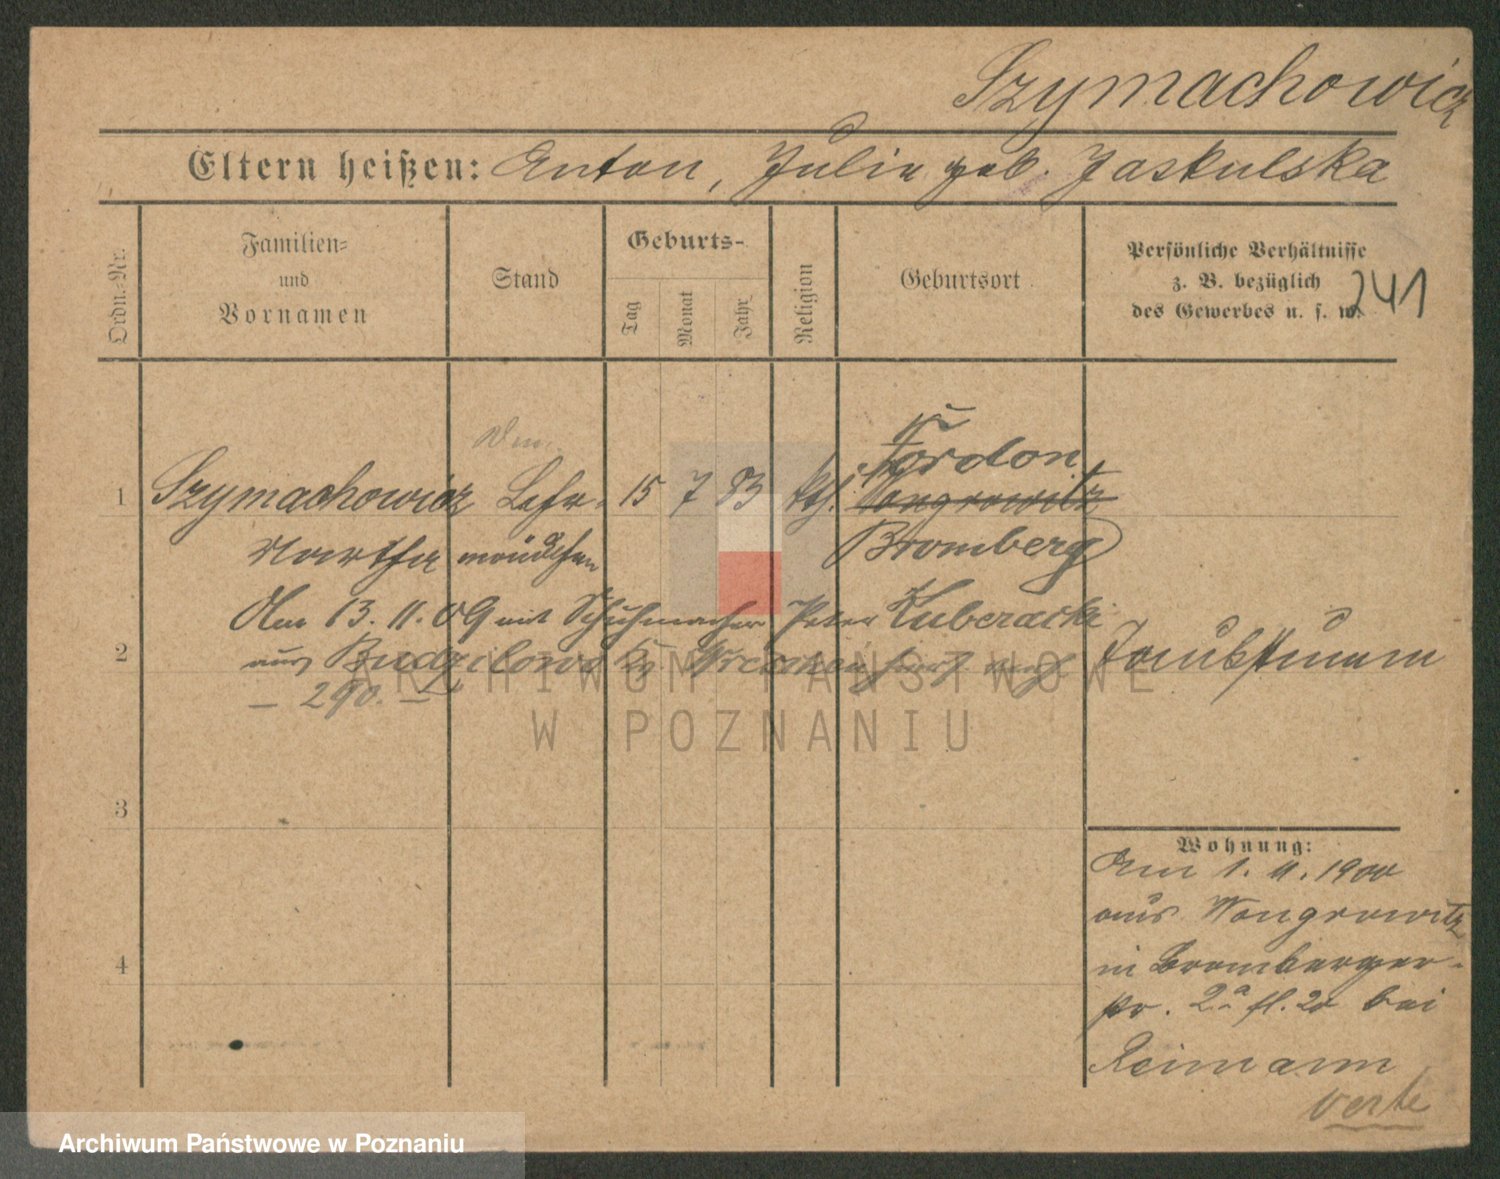 Szymachowicz
Eltern heißen: Anton, Julie geb. Jaskulska
Ordn.-Nr.
Familien-
und
Vornamen
Stand
Geburts-
Tag
Monat
Jahr
Religion
Geburtsort
Persönliche Verhältnisse
z. B. bezüglich
des Gewerbes u. s. w.
241
Fordon
1 Szymachowicz Lehr- 15 7 83 kth. Wongrowitz
Martha mädchen Bromberg
Am 13.11.09 mit Schuhmacher Peter
2 aus
— 290. —
3
Wohnung:
Am 1. 11. 1900
aus Wongrowitz
4 in Bromberger-
str. 2a fl. 2r bei
Reimann
verte
ARCHIWUM PAŃSTWOWE
W POZNANIU
Archiwum Państwowe w Poznaniu